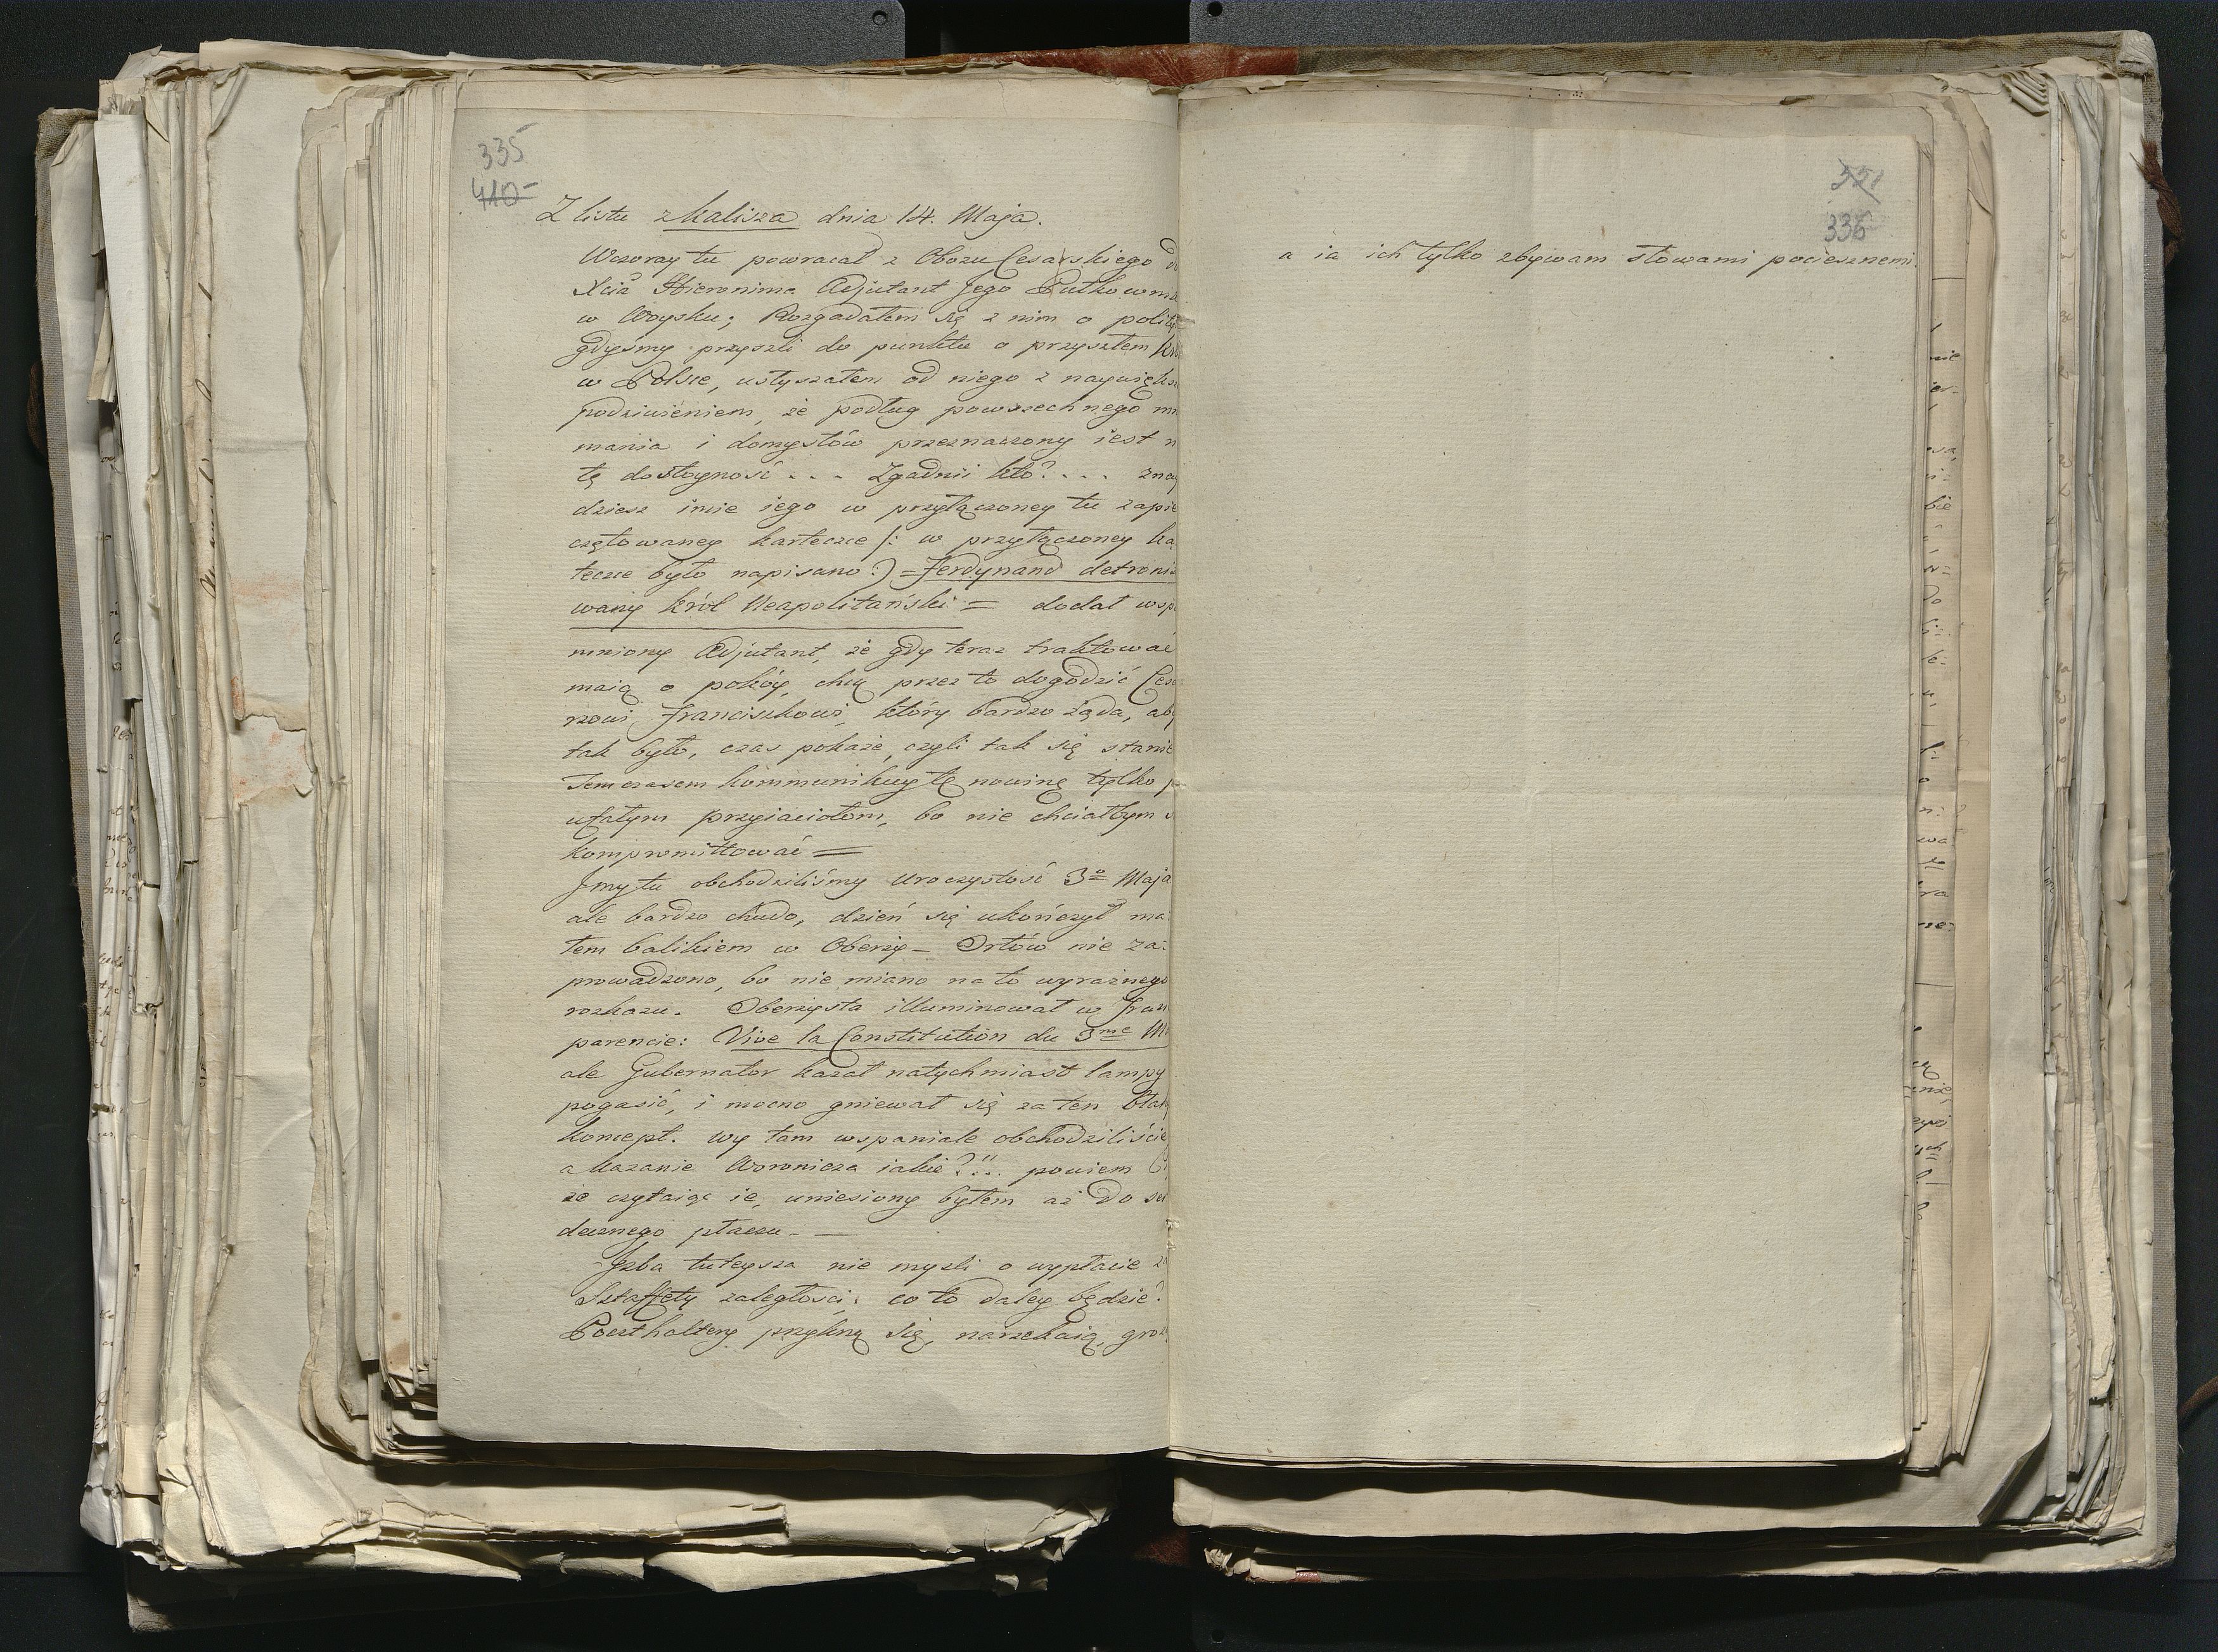 335
410
Z listu z Kalisza dnia 14. Maja.
Wczoray tu powracał z Obozu Cesarskiego d
Xcia Hieronima Adjutant Jego Pułkownik
w Woysku; Rozgadałem się z nim o polity
gdyśmy przyszli do punktu o przyszłem Kró
w Polsce, usłyszałem od niego z naywięks
podziwieniem, że podług powszechnego mn
mania i domysłów przeznaczony iest n
tę dostoyność . . . Zgadnii kto? . . . znay
dziesz imie iego w przyłączoney tu zapie
czętowaney karteczce /: w przyłączoney ka
teczce było napisano :) = Ferdynand detroni
wany król Neapolitański = dodał wsp
mniony Adjutant, że gdy teraz traktować
maią o pokóy, chcą przez to dogodzić Cesa
rzowi Franciszkowi, który bardzo żąda, aby
tak było, czas pokaże, czyli tak się stanie
Temczasem kommunikuy tę nowinę tylko p
ufałym przyiaciołom, bo nie chciałbym s
kompromittować =
J my tu obchodziliśmy Uroczystość 3º Maja
ale bardzo chudo, dzień się ukończył ma
łem balikiem w Oberży - Orłów nie za-
prowadzono, bo nie miano na to wyraźnego
rozkazu. Oberżysta illuminował w Tran
parencie: Vive la Constitution du 3me M
ale Gubernator kazał natychmiast lampy
pogasić, i mocno gniewał się za ten błah
koncept. Wy tam wspaniale obchodziliście
a kazanie Woronicza iakie?!... powiem C
że czytaiąc ie, uniesiony byłem aż do se
decznego płaczu. —
Jzba tuteysza nie myśli o wypłacie z
Sztaffety zaległości; co to daley będzie?
Poczthaltery przykrzą się, narzekaią, groz
551
336
a ia ich tylko zbywam słowami pociesznemi.